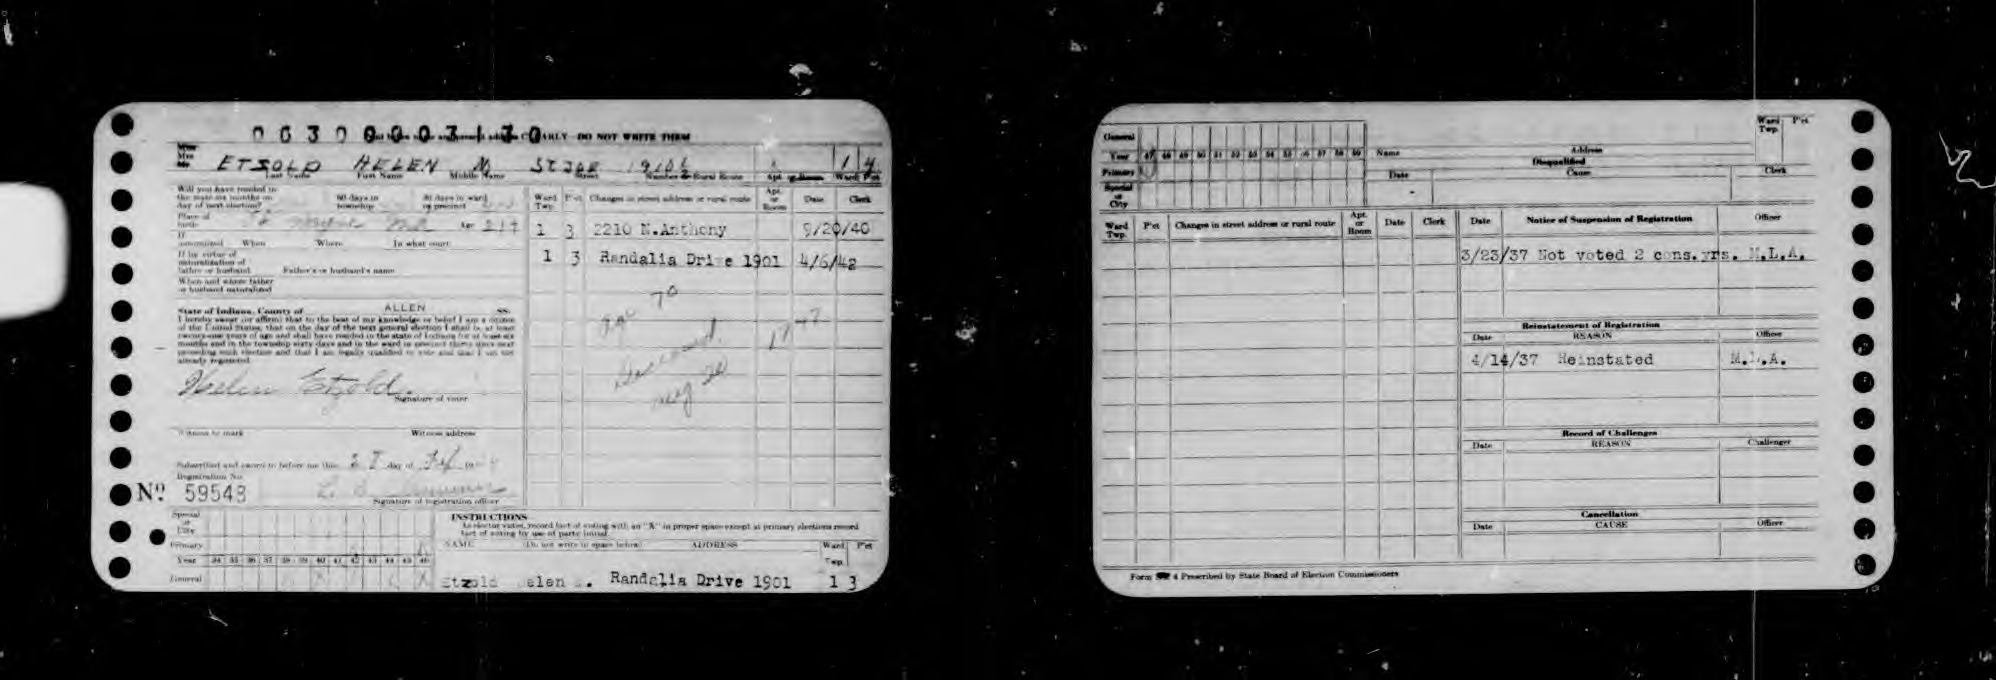 0 0 3 0 0 0 0 3 1 7 0 ARLY DO NOT WRITE THEM
Mrs
ETZOLD HELEN St Joe 1 4
Last Name First Name Middle Name Street Number Rural Route Apt. or Room Ward P'ct
Will you have resided in
the state six months on 60 days in 30 days in ward
day of next election? township or precinct
Place of
birth Age 21+
If
naturalized When Where In what court
If by virtue of
naturalization of
father or husband Father's or husband's name
When and where father
or husband naturalized
Ward Twp. P'ct Changes in street address or rural route Apt. or Room Date Clerk
1 3 2210 N.Anthony 9/20/40
1 3 Randalia Drive 1901 4/6/42
Deceased
State of Indiana, County of ALLEN SS.
I hereby swear (or affirm) that to the best of my knowledge or belief I am a citizen
of the United States, that on the day of the next general election I shall be at least
twenty-one years of age and shall have resided in the state of Indiana for at least six
months and in the township sixty days and in the ward or precinct thirty days next
preceding such election and that I am legally qualified to vote and that I am not
already registered.
Helen Etzold
Signature of voter
Witness to mark Witness address
Subscribed and sworn to before me this day of
Registration No.
No 59548
Signature of registration officer
INSTRUCTIONS
As elector votes, record fact of voting with an "X" in proper space except at primary elections record
fact of voting by use of party initial.
Special or City
Primary
Year 34 35 36 37 38 39 40 41 42 43 44 45 46
General
NAME (Do not write in space below) ADDRESS Ward Twp. P'ct
Etzold elen Randalia Drive 1901 1 3
General
Year 47 48 49 50 51 52 53 54 55 56 57 58 59
Primary
Special or City
Name Address Ward Twp. P'ct
Disqualified
Date Cause Clerk
Ward Twp. P'ct Changes in street address or rural route Apt. or Room Date Clerk
Date Notice of Suspension of Registration Officer
3/23/37 Not voted 2 cons.yrs. M.L.A.
Reinstatement of Registration
Date REASON Officer
4/14/37 Reinstated M.L.A.
Record of Challenges
Date REASON Challenger
Cancellation
Date CAUSE Officer
Form 4 Prescribed by State Board of Election Commissioners